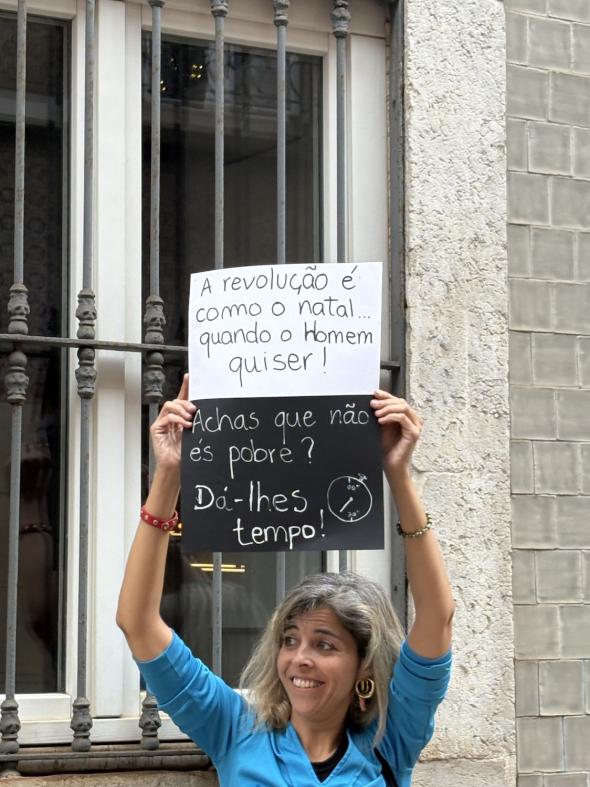 A revolução é
como o natal...
quando o Homem
quiser!
Achas que não
és pobre?
Dá-lhes
tempo!